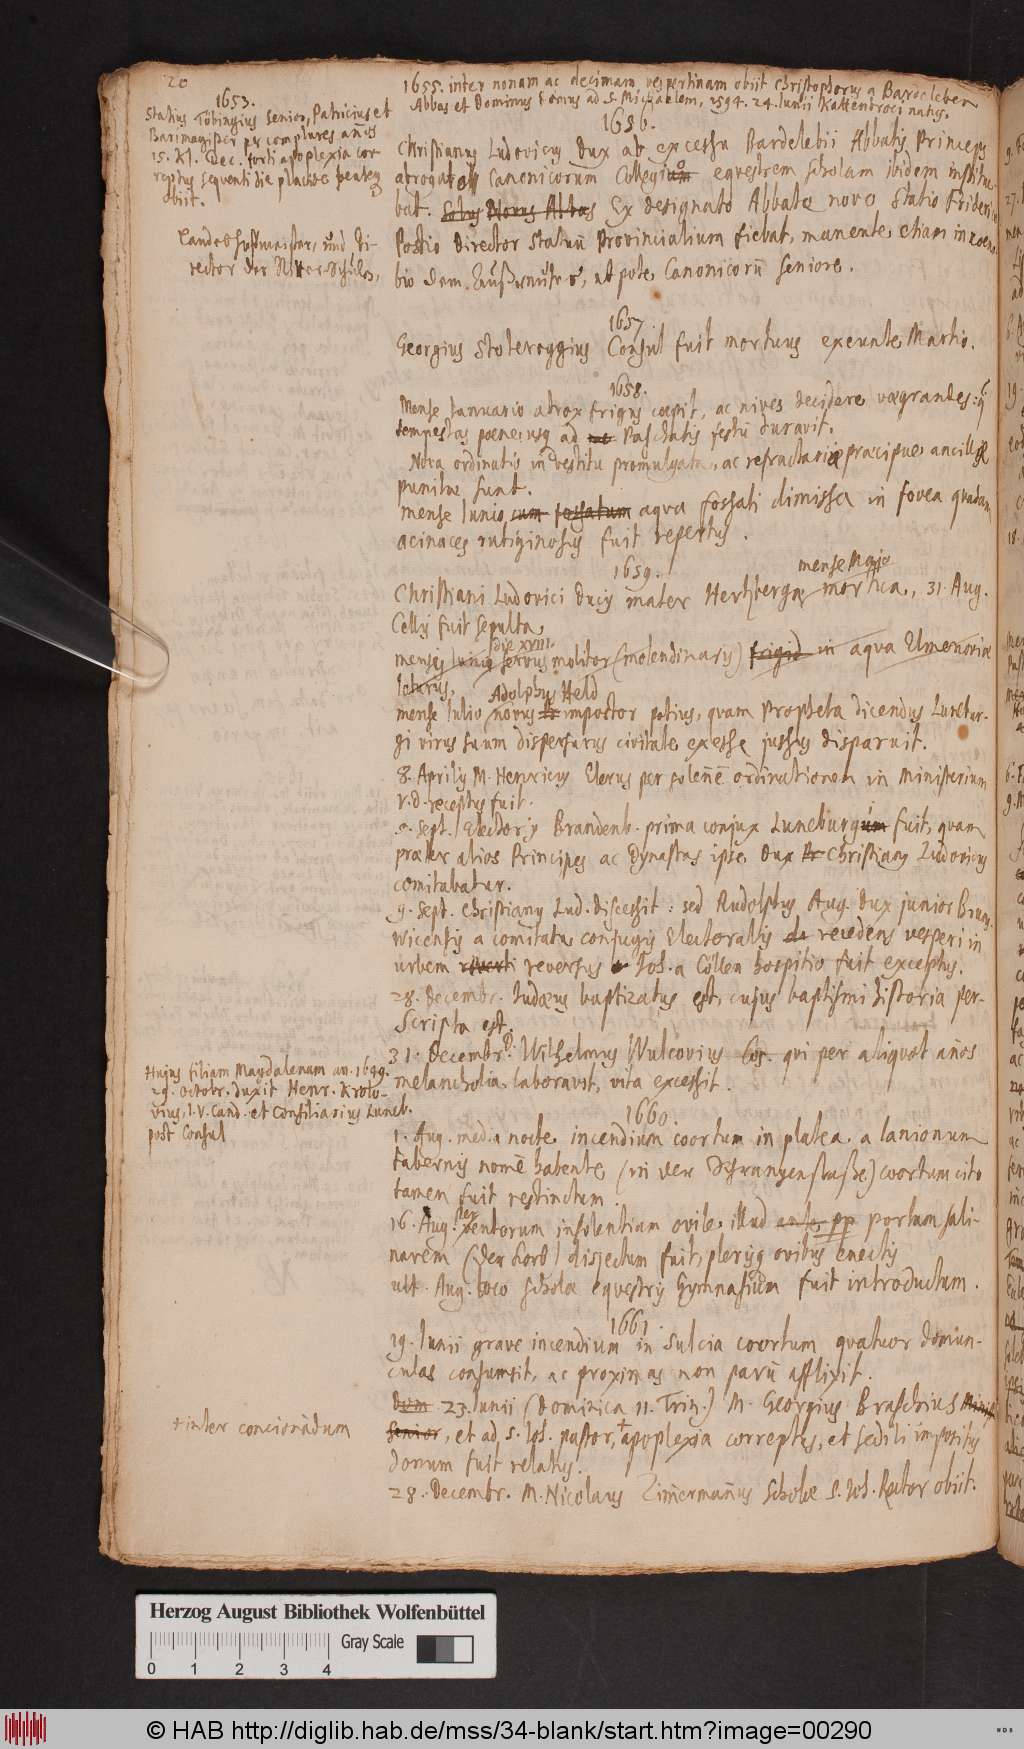 20
1653.
Statius Töbingius Senior, Patricius et
Barmagister per complures años
15. Kl. Dec. forti apoplexia cor-
reptus sequenti die placide
obiit.
Landes Hofmeister, und Di-
rector der Ritter-Schulen,
1655. inter nonam ac decimam vespertinam obiit Christophorus a Bardeleben
Abbas et Dominus Domus ad S. Michaelem, 1594. 24. Junii Kattenbroci natus.
1656.
Christianus Ludovicus Dux ab excessu Bardelebii Abbatis Princeps
abrogat Canonicorum Collegium equestrem scholam ibidem institue-
bat. Novus Abbas Ex designato Abbate novo Statio Frideri
Postio Director Statuū Provincialium fiebat, manente etiam in coeno-
bio Dom. , utpote Canonicorū seniore.
1657.
Georgius Stoteroggius Consul fuit mortuus exeunte Martio.
1658.
Mense Januario atrox frigus coepit, ac nives decidere vaegrandes:
tempestas poene usq ad Paschatis festū duravit.
Nova ordinatio in vestitu promulgata, ac refractariae praecipue ancillae
punitae sunt.
mense Junio cum fossatum aqua fossati dimissa in fovea quadam
acinaces rutiginosis fuit refertus.
1659.
Christiani Ludovici Ducis mater Hertzbergae mense Majo mortua, 31. Aug.
Cellis fuit sepulta.
mensis Junii die XVIII. servus molitor (molendinarij) frigid in aqua Elmenoriae
mense Julio novus Adolphus Held impostor potius, quam Propheta dicendus Lunebur-
gi virus suum dispersurus civitate exesse jussus disparuit.
8. Aprilis M. Henricus Elerus per solenē ordinationem in ministerium
v. d. receptus fuit.
Sept. Electoris Brandenb. prima conjux Luneburgi fuit, quam
praeter alios Principes ac Dynastas ipse Dux Christianus Ludovicus
comitabatur.
9. Sept. Christianus Lud. discessit: sed Rudolphus Aug. Dux junior Bruns-
wicensis a comitatu conjugis Electoralis recedens vesperi in
urbem reversus Joh. a Cöllen hospitio fuit exceptus.
28. Decembr. Judaeus baptizatus est, cujus baptismi historia per-
scripta est.
31. Decembr. D. Wilhelmus Wulcovius Cos. qui per aliquot años
melancholia laboravit, vita excessit.
Hujus filiam Magdalenam an. 1649.
29. Octobr. duxit Henr. Krolo-
vius, J. V. Cand. et Consiliarius Luneb.
post Consul
1660.
1. Aug. media nocte incendium coortum in platea a lanionum
tabernis nomē habente (in der Schrangenstraße) coortum cito
tamen fuit restinctum.
16. Aug. per ventorum insolentiam ovile illud ante pp portam sali-
narem (der ) disjectum fuit, plerisq ovibus enectis
ult. Aug. loco scholae equestris Gymnasium fuit introductum.
1661.
19. Junii grave incendium in Sulcia coortum quatuor domun-
culas consumsit, ac proximas non parū afflixit.
Dom 23. Junii (Dominica II. Trin.) M. Georgius Braschius
Senior, et ad S. Joh. pastor, † apoplexia correptus, et sedili impositus
domum fuit relatus.
† inter concionadum
28. Decembr. M. Nicolaus Zimermañus Scholae S. Joh. Rector obiit.
Herzog August Bibliothek Wolfenbüttel
Gray Scale
0 1 2 3 4
© HAB http://diglib.hab.de/mss/34-blank/start.htm?image=00290